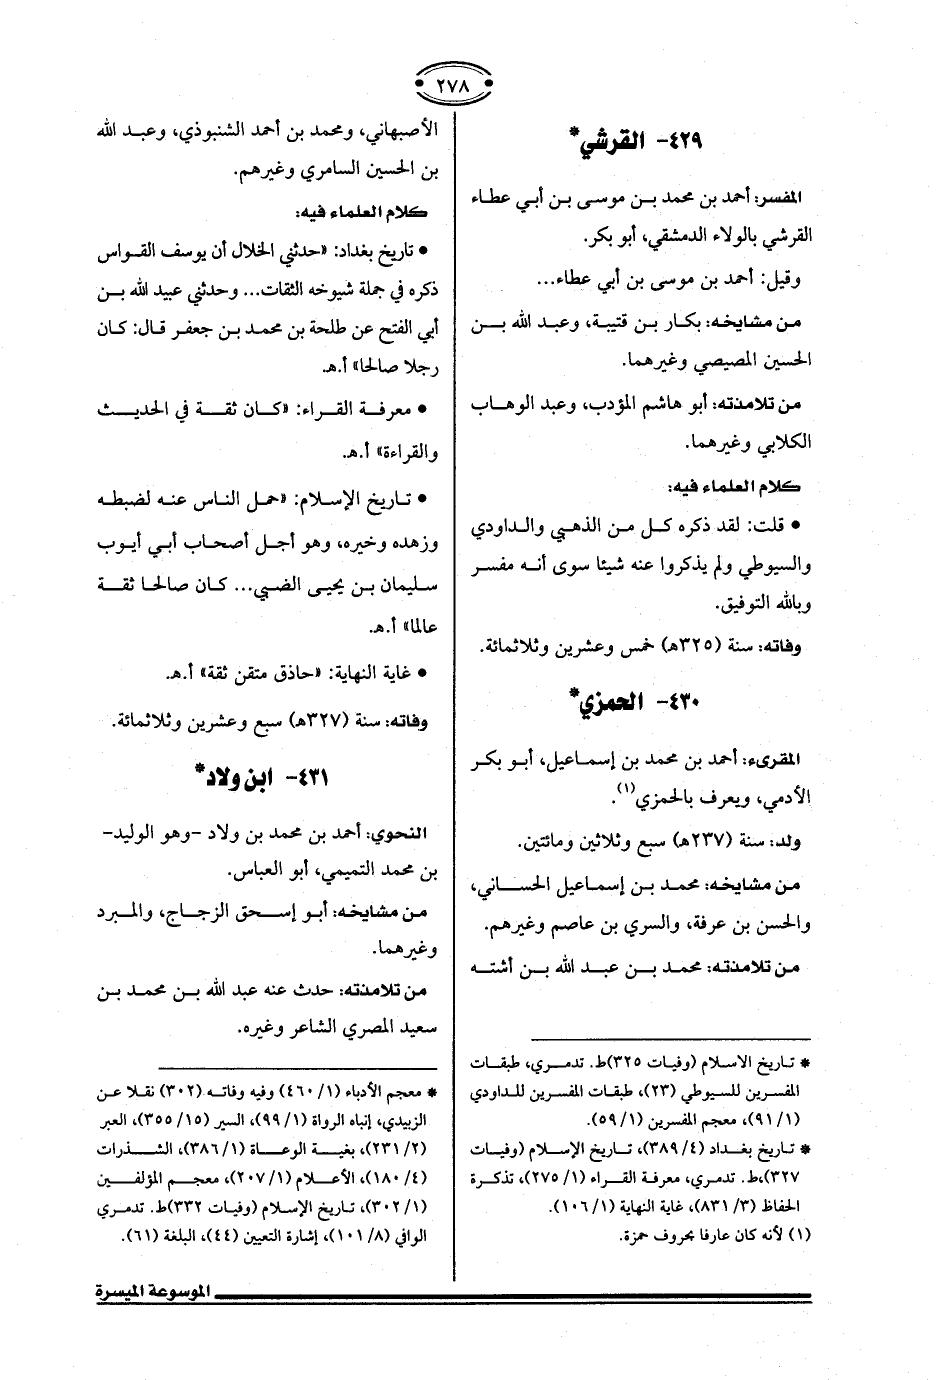 ٢٧٨
٤٢٩- القرشي*
المفسر: أحمد بن محمد بن موسى بن أبي عطاء
القرشي بالولاء الدمشقي، أبو بكر.
وقيل: أحمد بن موسى بن أبي عطاء...
من مشايخه: بكار بن قتيبة، وعبد الله بن
الحسين المصيصي وغيرهما.
من تلامذته: أبو هاشم المؤدب، وعبد الوهاب
الكلابي وغيرهما.
كلام العلماء فيه:
• قلت: لقد ذكره كل من الذهبي والداودي
والسيوطي ولم يذكروا عنه شيئا سوى أنه مفسر
وبالله التوفيق.
وفاته: سنة (٣٢٥هـ) خمس وعشرين وثلاثمائة.
٤٣٠- الحمزي*
المقرىء: أحمد بن محمد بن إسماعيل، أبو بكر
الأدمي، ويعرف بالحمزي(١).
ولد: سنة (٢٣٧هـ) سبع وثلاثين ومائتين.
من مشايخه: محمد بن إسماعيل الحساني،
والحسن بن عرفة، والسري بن عاصم وغيرهم.
من تلامذته: محمد بن عبد الله بن أشته
* تاريخ الاسلام (وفيات ٣٢٥)ط. تدمري، طبقات
المفسرين للسيوطي (٢٣)، طبقات المفسرين للداودي
(١/ ٩١)، معجم المفسرين (١/ ٥٩).
* تاريخ بغداد (٤/ ٣٨٩)، تاريخ الإسلام (وفيات
٣٢٧)،ط. تدمري، معرفة القراء (١/ ٢٧٥)، تذكرة
الحفاظ (٣/ ٨٣١)، غاية النهاية (١/ ١٠٦).
(١) لأنه كان عارفا بحروف حمزة.
الأصبهاني، ومحمد بن أحمد الشنبوذي، وعبد الله
بن الحسين السامري وغيرهم.
كلام العلماء فيه:
• تاريخ بغداد: «حدثني الخلال أن يوسف القواس
ذكره في جملة شيوخه الثقات... وحدثني عبيد الله بن
أبي الفتح عن طلحة بن محمد بن جعفر قال: كان
رجلا صالحا» أ.هـ.
• معرفة القراء: «كان ثقة في الحديث
والقراءة» أ.هـ.
• تاريخ الإسلام: «حمل الناس عنه لضبطه
وزهده وخيره، وهو أجل أصحاب أبي أيوب
سليمان بن يحيى الضبي... كان صالحا ثقة
عالما» أ.هـ.
• غاية النهاية: «حاذق متقن ثقة» أ.هـ.
وفاته: سنة (٣٢٧هـ) سبع وعشرين وثلاثمائة.
٤٣١- ابن ولاد*
النحوي: أحمد بن محمد بن ولاد -وهو الوليد-
بن محمد التميمي، أبو العباس.
من مشايخه: أبو إسحق الزجاج، والمبرد
وغيرهما.
من تلامذته: حدث عنه عبد الله بن محمد بن
سعيد المصري الشاعر وغيره.
* معجم الأدباء (١/ ٤٦٠) وفيه وفاته (٣٠٢) نقلا عن
الزبيدي، إنباه الرواة (١/ ٩٩)، السير (١٥/ ٣٥٥)، العبر
(٢/ ٢٣١)، بغية الوعاة (١/ ٣٨٦)، الشذرات
(٤/ ١٨٠)، الأعلام (١/ ٢٠٧)، معجم المؤلفين
(١/ ٣٠٢)، تاريخ الإسلام (وفيات ٣٣٢)ط. تدمري
الوافي (٨/ ١٠١)، إشارة التعيين (٤٤)، البلغة (٦١).
الموسوعة الميسرة